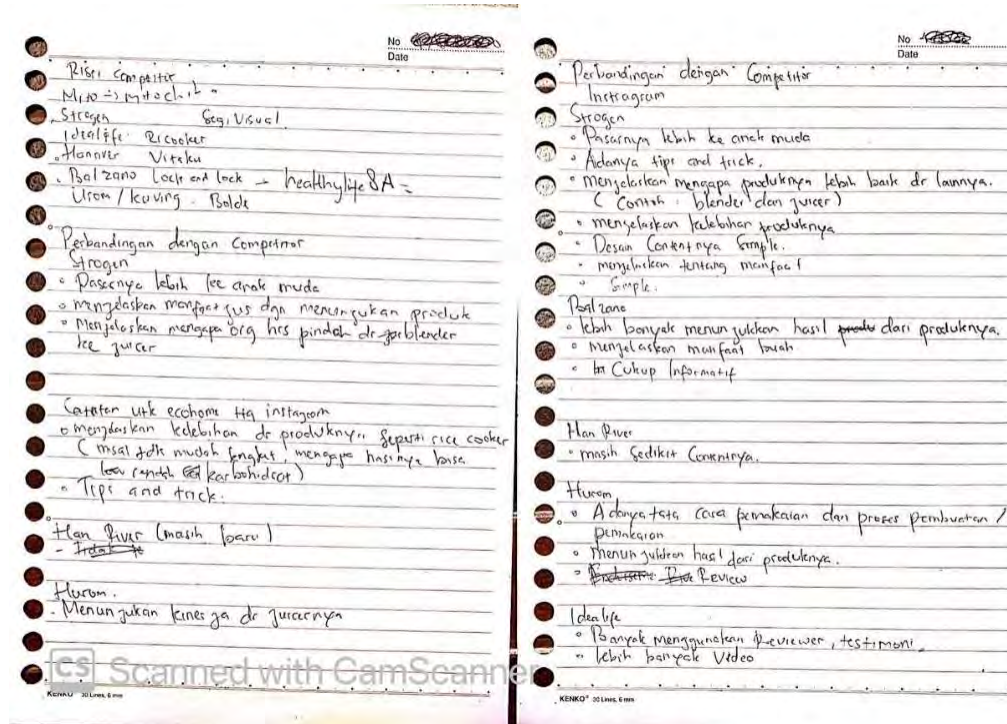 No
Date
Riset Competitor
Mito => mitochiba
Strogen Segi Visual
Idealife Ricooker
Hanover Vitaku
Balzano Lock and lock - healthylife SA =
/ kuving . Bolde
Perbandingan dengan Competitor
Strogen
Pasarnya lebih ke anak muda
menjelaskan manfaat jus dgn menunjukan produk
Menjelaskan mengapa org hrs pindah dr blender
ke juicer
Catatan utk ecohome ttg instagram
menjelaskan kelebihan dr produknya seperti rice cooker
( msal tdk mudah lengket, mengapa hasinya bisa
rendah karbohidrat)
Tips and trick.
Han River (masih baru)
Hurom.
Menunjukan kinerja dr juicernya
CS Scanned with CamScanner
KENKO 30 Lines, 6 mm
No
Date
Perbandingan dengan Competitor
Instragram
Strogen
Pasarnya lebih ke anak muda
Adanya tips and trick.
menjelaskan mengapa produknya lebih baik dr lainnya.
( Contoh : blender dan juicer)
menjelaskan kelebihan produknya
Desain Contentnya Simple.
menjelaskan tentang manfaat
Simple.
Balzano
lebih banyak menunjukkan hasil dari produknya.
menjelaskan manfaat buah
Cukup Informatif
Han River
masih Sedikit Contentnya.
Hurom
Adanya tata cara pemakaian dan proses pembuatan /
pemakaian
menunjukkan hasil dari produknya.
Review
Idealife
Banyak menggunakan Reviewer, testimoni.
lebih banyak Video
KENKO® 30 Lines, 6 mm